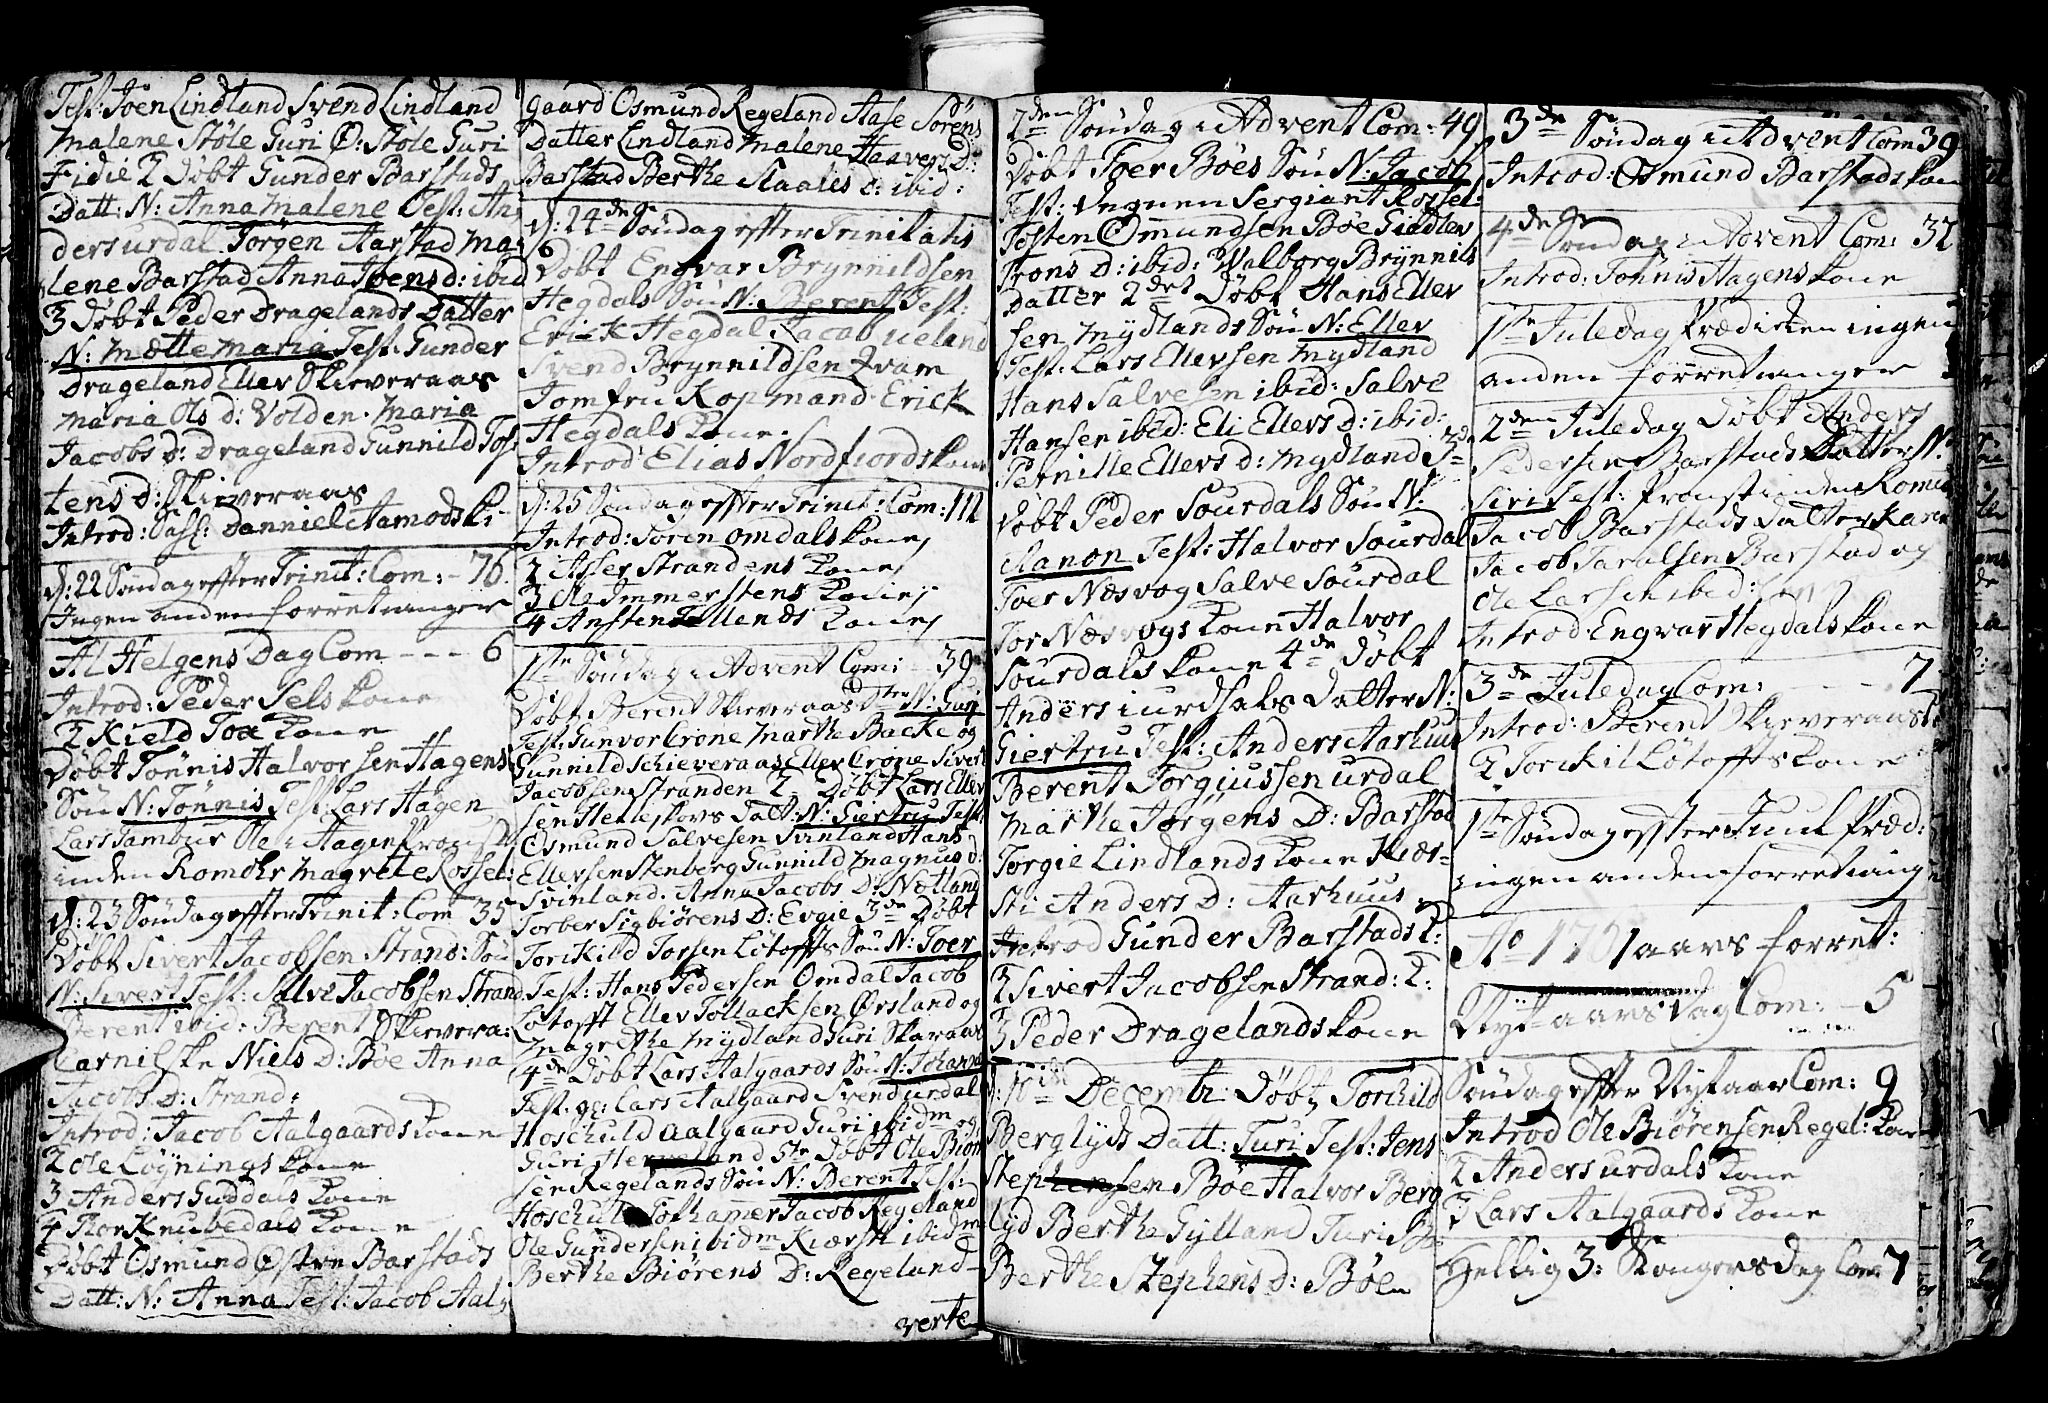 Test: Joen Lindland Svend Lindland
Malene Stöle Guri O: Stöle Guri
Fidie 2 Döbt Gunder Barstads
Datt: N: Anna Malene Test: An
ders urdal Jörgen Aarstad Ma
lene Barstad Anna Joens d: ibid
3 Döbt Peder Dragelands Datter
N: Mætte Maria Test: Gunder
Drageland Ellev Skieveraas
Maria Ols d: Volden. Maria
Jacobs D: Drageland Gunnild Tos
tens d: Skieveraas
Introd: Danniel Aamodts K:
D: 22 Söndag effter Trinit: Com: - 76.
Ingen anden forretninger
Al Helgens Dag Com - - - 6
Introd: Peder Sels kone
2 Kield Toæ Kone
Döbt Tönnis Halvorsen Hagens
Sön N: Tönnis Test: Lars Hagen
Lars Tambur Ole i Hagen
inden Romdhr Magrete Rossel:
D: 23 Söndag effter Trinit: Com 35
Döbt Sivert Jacobsen Strand: Sön
N: Sivert Test: Salve Jacobsen Strand
Berent ibid: Berent Skievera:
Carnilske Niels D: Böe Anna
Jacobs D: Strand:
Introd: Jacob Aalgaards kone
2 Ole Löynings kone
3 Anders Guddals Kone
4 Thor Knubedals Kone
Döbt Osmund Østre Barstads
Datt: N: Anna Test: Jacob Aal
gaard Osmund Regeland Aase Sörens
Datter Lindland Malene Haavers D:
Barstad Berthe Staales d: ibid:
D: 24de Söndag effter Trinitatis
Döbt Engvar Brynnildsen
Hegdals Sön N: Berent Test:
Erick Hegdal Jacob ueland
Svend Brynnildsen Qvam
Jomfru Kopmand Erick
Hegdals Kone.
Introd Elias Nordfiords kone
D: 25 Söndag effter Trinit: Com: 111
Introd: Sören omdals kone
2 Asser Strandens Kone
3 Ols Immerstens Kone
4 Ansten Tellends Kone
1ste Söndag i Advent Com: 39
Döbt Berent Skieveraas Dtter N: Guri
Test: Gunvor Crone Marthe Backe og
Gunnild Schieveraas Ellev Crone Sivert
Jacobsen Stranden 2 Döbt Lars Ellev
sen Helleskovs Datt: N: Giertru Test:
Osmund Salvesen Svinland Hans
Ellevsen Stenberg Gunnild Magnus d:
Svinland. Anna Jacobs D: Netland
Torber Sigbiörens D: Evgie 3de Döbt
Torkild Torsen Lötoffts Sön N: Toer
Test: Hans Pedersen Omdal Jacob
Lötofft Ellev Tollacksen Ørsland og
Magrethe Mydland Guri Skaraas
4de Döbt Lars Aalgaards Sön N: Johanne
Test: gl: Lars Aalgaard Svend urdal
Hoschuld Aalgaard Guri ibidm og
Guri Herveland 5te Döbt Ole Biörn
sen Regelands Sön N: Berent Test:
Hoschul Tofhamer Jacob Regeland
Ole Gundersen ibidm Kiersti ibidm
Berthe Biörens D: Regeland
verte
2den Söndag i Advent Com: 49
Döbt Toer Böes Sön N: Jacob
Test: Vegnen Sergiant Rossel:
Tosten Omundsen Böe Siedlev
Trons D: ibid: Walborg Brynnils
Datter 2det Döbt Hans Ellev
sen Mydlands Sön N: Ellev
Test: Lars Ellevsen Mydland
Hans Salvesen ibid: Salve
Hansen ibid: Eli Ellevs D: ibid:
Pernille Ellevs D: Mydland 3de
Döbt Peder Sourdals Sön N:
Aanon Test: Halvor Sourdal
Toer Næsvog Salve Sourdal
Tor Næsvogs Kone Halvor
Sourdals kone 4de Döbt
Anders iurdsals Datter N:
Giertru Test: Anders Aarhuus
Berent Torgiussen urdal
Marthe Jörgens D: Barstad
Torgie Lindlands Kone Kiers-
sti Anders D: Aarhuus
Introd Gunder Barstads K:
2 Sivert Jacobsen Strand: K:
3 Peder Dragelands kone
D: 10 Decembr: Döbt Torkild
Berglyds Datt: Turi Test: Jens
Stephensen Böe Halvor Berg
lyd Berthe Gylland Turi
Berthe Stephens D: Böe
3de Söndag i Advent Com 39
Introd: Osmund Barstads kone
4de Söndag i Advent Com: 37
Introd: Tönnis Hagens kone
1ste Juledag Prædicken ingen
anden forretninger
2den Juledag Döbt Anders
Pedersen Barstads Datter N:
Siri Test:
Jacob Barstads datter Karen
Jacob Taralsen Barstad og
Ole Larsen ibid:
Introd: Engvar Hegdals kone
3de Juledag Com: - - - 7
Introd: Berent Skieveraas
2 Torckil Lötoffts kone
1ste Söndag effter Juul Præd:
ingen anden forretning
Ao 1751 aars forret:
Nyt-aars Dag Com: - 5
Söndag effter Nytaar Com: 9
Introd Ole Biörensen Regel: kone
2 Anders urdals kone
3 Lars Aalgaards kone
Hellig 3: Kongers Dag Com: 7